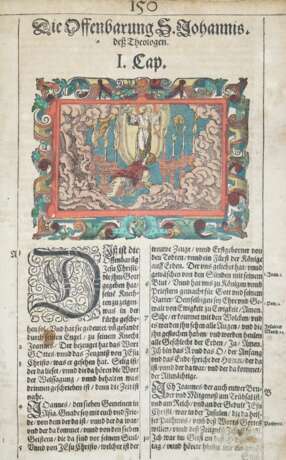 150
Die Offenbarung S. Johannis.
deß Theologen.
I. Cap.
A
DIß ist die
Offenbarũg
Jesu Christi/
die jhm Gott
gegeben hat/
seinen Knech-
ten zu zeigen/
was in der
kürtze gesche-
hen sol. Und hat sie gedeutet/ uñ gesandt
durch seinen Engel/ zu seinem Knecht
Joannes. Der bezeuget hat das Wort
GOttes/ unnd das Zeugnuß von JEsu
Christo/ was er gesehen hat. Selig ist/
der da lieset/ unnd die da hören die Wort
der Weissagung/ unnd behalten was
drinnen geschrieben ist/ denn die Zeit ist
nahe.
JOannes/ den sieben Gemeinen in
Asia. Gnade sey mit euch und Frie-
de/ von dem der da ist/ unnd der da war/
und der da kommet/ unnd von den sieben
Geistern/ die da sind vor seinem Stul/
Unnd von JEsu Christo/ welcher ist der
trewe Zeuge/ unnd Erstgeborner von
den Todten/ unnd ein Fürst der Könige
auff Erden. Der uns geliebet hat/ unnd
gewaschen von den Sünden mit seinem
Blut/ Unnd hat uns zu Königen unnd
Priestern gemacht für Gott und seinem
Vatter/ Denselbigen sey Ehre und Ge-
walt von Ewigkeit zu Ewigkeit/ Amen.
Sihe/ er kommet mit den Wolcken/ und
es werden jhn sehen alle Augen/ und die
jhn gestochen haben/ und werden heulen
alle Geschlechte der Erden/ Ja/ Amen.
Ich bin das A und das O/ der Anfang
und das Ende/ spricht der HErr/ der da
ist/ und der da war/ und der da kommt/
der Allmächtige.
B
JCh Joannes/ der auch ewer Bru-
der und Mitgenoß am Trübsal ist/
und am Reich/ und an der Gedult JEsu
Christi/ war in der Insulen/ die da heis-
set Pathmos/ umb deß Worts Gottes
willen/ und deß Zeugnuß Jesu Christi.
Ich war im Geist an